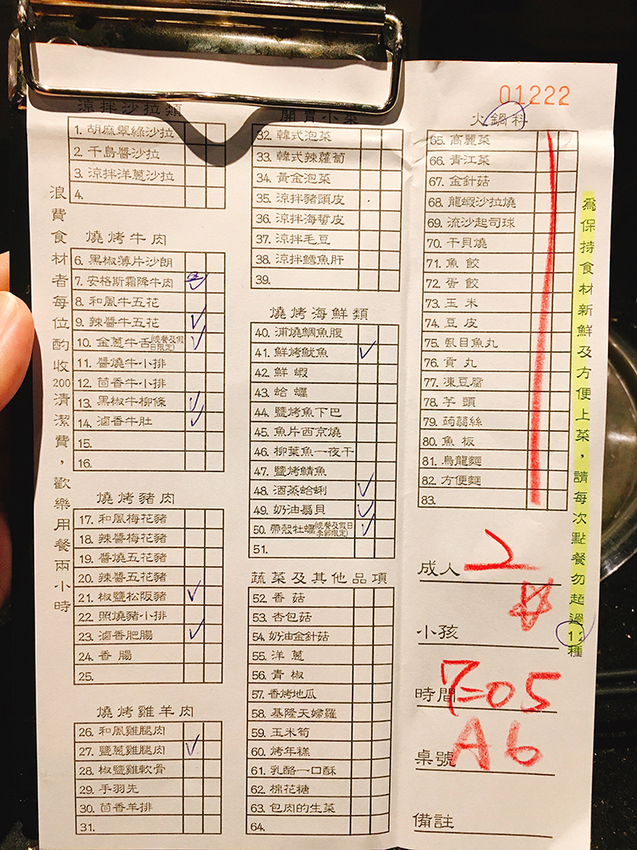 01222
浪費食材者每位酌收200清潔費，歡樂用餐兩小時
涼拌沙拉類
1. 胡麻翠綠沙拉
2. 千島醬沙拉
3. 涼拌洋蔥沙拉
4.
燒烤牛肉
6. 黑椒薄片沙朗
7. 安格斯霜降牛肉
8. 和風牛五花
9. 辣醬牛五花
10. 金蔥牛舌(晚餐及假日限定)
11. 醬燒牛小排
12. 茴香牛小排
13. 黑椒牛柳條
14. 滷香牛肚
15.
16.
燒烤豬肉
17. 和風梅花豬
18. 辣醬梅花豬
19. 醬燒五花豬
20. 辣醬五花豬
21. 椒鹽松阪豬
22. 照燒豬小排
23. 滷香肥腸
24. 香腸
25.
燒烤雞羊肉
26. 和風雞腿肉
27. 鹽蔥雞腿肉
28. 椒鹽雞軟骨
29. 手羽先
30. 茴香羊排
31.
開胃小菜
32. 韓式泡菜
33. 韓式辣蘿蔔
34. 黃金泡菜
35. 涼拌豬頭皮
36. 涼拌海哲皮
37. 涼拌毛豆
38. 涼拌鱈魚肝
39.
燒烤海鮮類
40. 蒲燒鯛魚腹
41. 鮮烤魷魚
42. 鮮蝦
43. 蛤蠣
44. 鹽烤魚下巴
45. 魚片西京燒
46. 柳葉魚一夜干
47. 鹽烤鯖魚
48. 酒蒸蛤蜊
49. 奶油扇貝
50. 帶殼牡蠣(晚餐及假日季節限定)
51.
蔬菜及其他品項
52. 香菇
53. 杏包菇
54. 奶油金針菇
55. 洋蔥
56. 青椒
57. 香烤地瓜
58. 基隆天婦羅
59. 玉米筍
60. 烤年糕
61. 乳酪一口酥
62. 棉花糖
63. 包肉的生菜
64.
火鍋料
65. 高麗菜
66. 青江菜
67. 金針菇
68. 龍蝦沙拉燒
69. 流沙起司球
70. 干貝燒
71. 魚餃
72. 蛋餃
73. 玉米
74. 豆皮
75. 虱目魚丸
76. 貢丸
77. 凍豆腐
78. 芋頭
79. 蒟蒻絲
80. 魚板
81. 烏龍麵
82. 方便麵
83.
成人 2
小孩
時間 7=05
桌號 A6
備註
為保持食材新鮮及方便上菜，請每次點餐勿超過12種